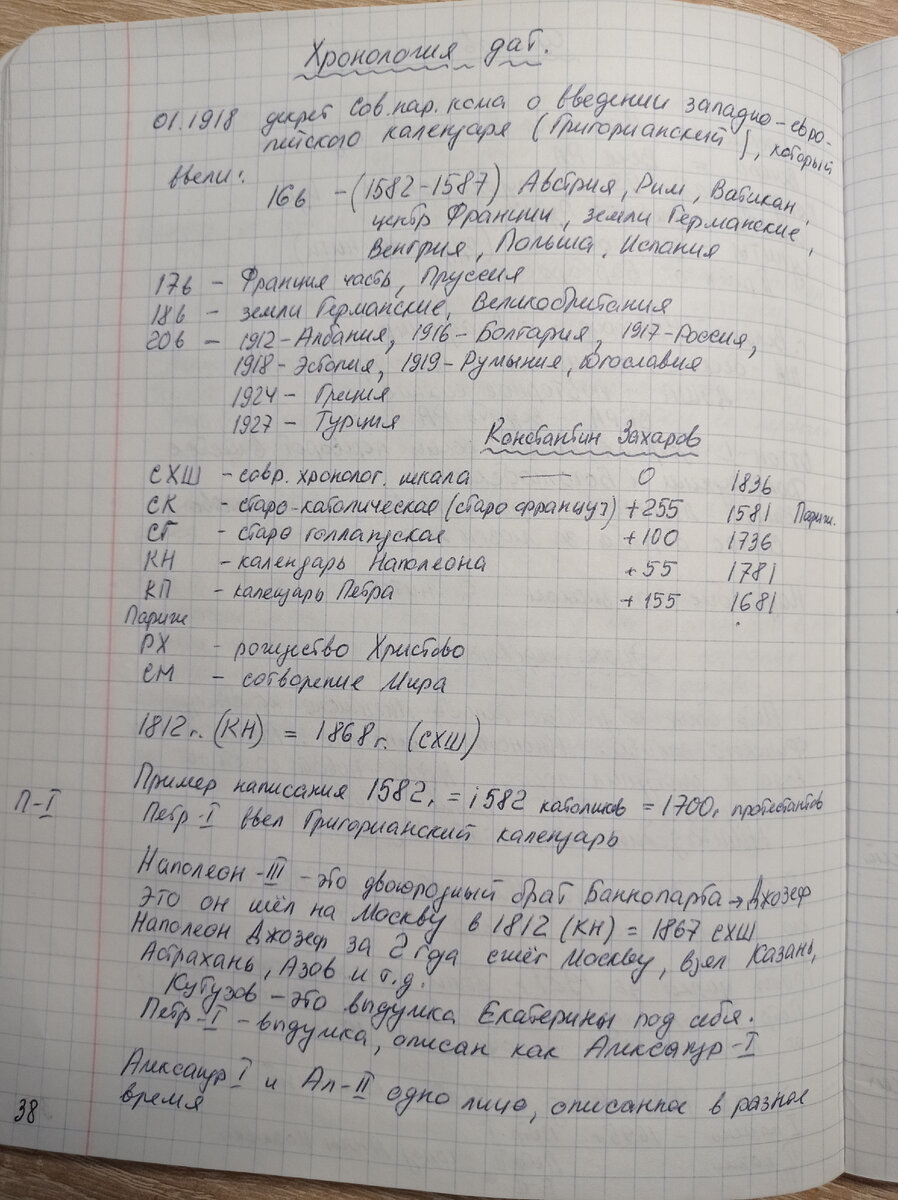 Хронология дат.
01.1918 декрет Сов.нар.кома о введении западно-евро-
пейского календаря (Григорианский), который
ввели:
16в - (1582-1587) Австрия, Рим, Ватикан,
центр Франции, земли Германские,
Венгрия, Польша, Испания
17в - Франция часть, Пруссия
18в - земли Германские, Великобритания
20в - 1912-Албания, 1916-Болгария, 1917-Россия,
1918-Эстония, 1919-Румыния, Югославия
1924 - Греция
1927 - Турция
Константин Захаров
СХШ - совр. хронолог. шкала — 0 1836
СК - старо-католическая (старо француз) +255 1581 Париж.
СГ - старо голландская +100 1736
КН - календарь Наполеона +55 1781
КП - календарь Петра +155 1681
Париж
РХ - рождество Христово
СМ - сотворение Мира
1812г. (КН) = 1868г. (СХШ)
Пример написания 1582г = i582 католиков = 1700г протестантов
П-I Петр-I ввел Григорианский календарь
Наполеон-III - это двоюродный брат Баннопарта → Джозеф
Это он шёл на Москву в 1812 (КН) = 1867 СХШ
Наполеон Джозеф за 2 года сжёг Москву, взял Казань,
Астрахань, Азов и т.д.
Кутузов - это выдумка Екатерины под себя.
Петр-I - выдумка, описан как Александр-I
Александр I и Ал-II одно лицо, описанное в разное
время
38